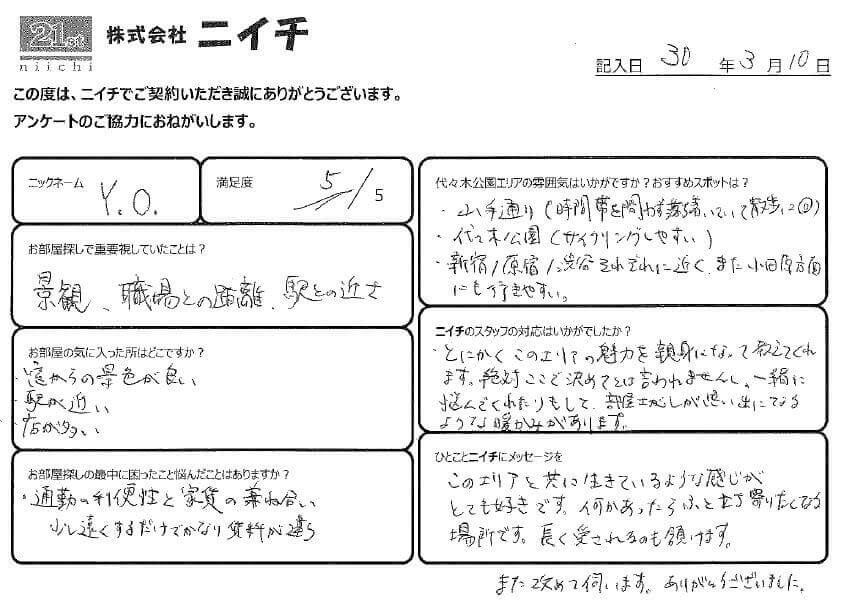 21st
niichi
株式会社 ニイチ
記入日 30 年 3 月 10 日
この度は、ニイチでご契約いただき誠にありがとうございます。
アンケートのご協力におねがいします。
ニックネーム
Y.O.
満足度
5/5
お部屋探しで重要視していたことは？
景観、職場との距離、駅との近さ
お部屋の気に入った所はどこですか？
・窓からの景色が良い
・駅が近い
・店が多い
お部屋探しの最中に困ったこと悩んだことはありますか？
・通勤の利便性と家賃の兼ね合い
少し遠くするだけでかなり賃料が違う
代々木公園エリアの雰囲気はいかがですか？おすすめスポットは？
・山手通り（時間帯を問わず落ち着いていて散歩に◎）
・代々木公園（サイクリングしやすい）
・新宿/原宿/渋谷それぞれに近く、また小田原方面
にも行きやすい。
ニイチのスタッフの対応はいかがでしたか？
・とにかくこのエリアの魅力を親身になって教えてくれ
ます。絶対ここで決めてとは言われませんし、一緒に
悩んでくれたりもして、部屋さがしが思い出になる
ような暖かみがあります。
ひとことニイチにメッセージを
このエリアと共に生きているような感じが
とても好きです。何かあったらふと立ち寄りたくなる
場所です。長く愛されるのも頷けます。
また改めて伺います。ありがとうございました。